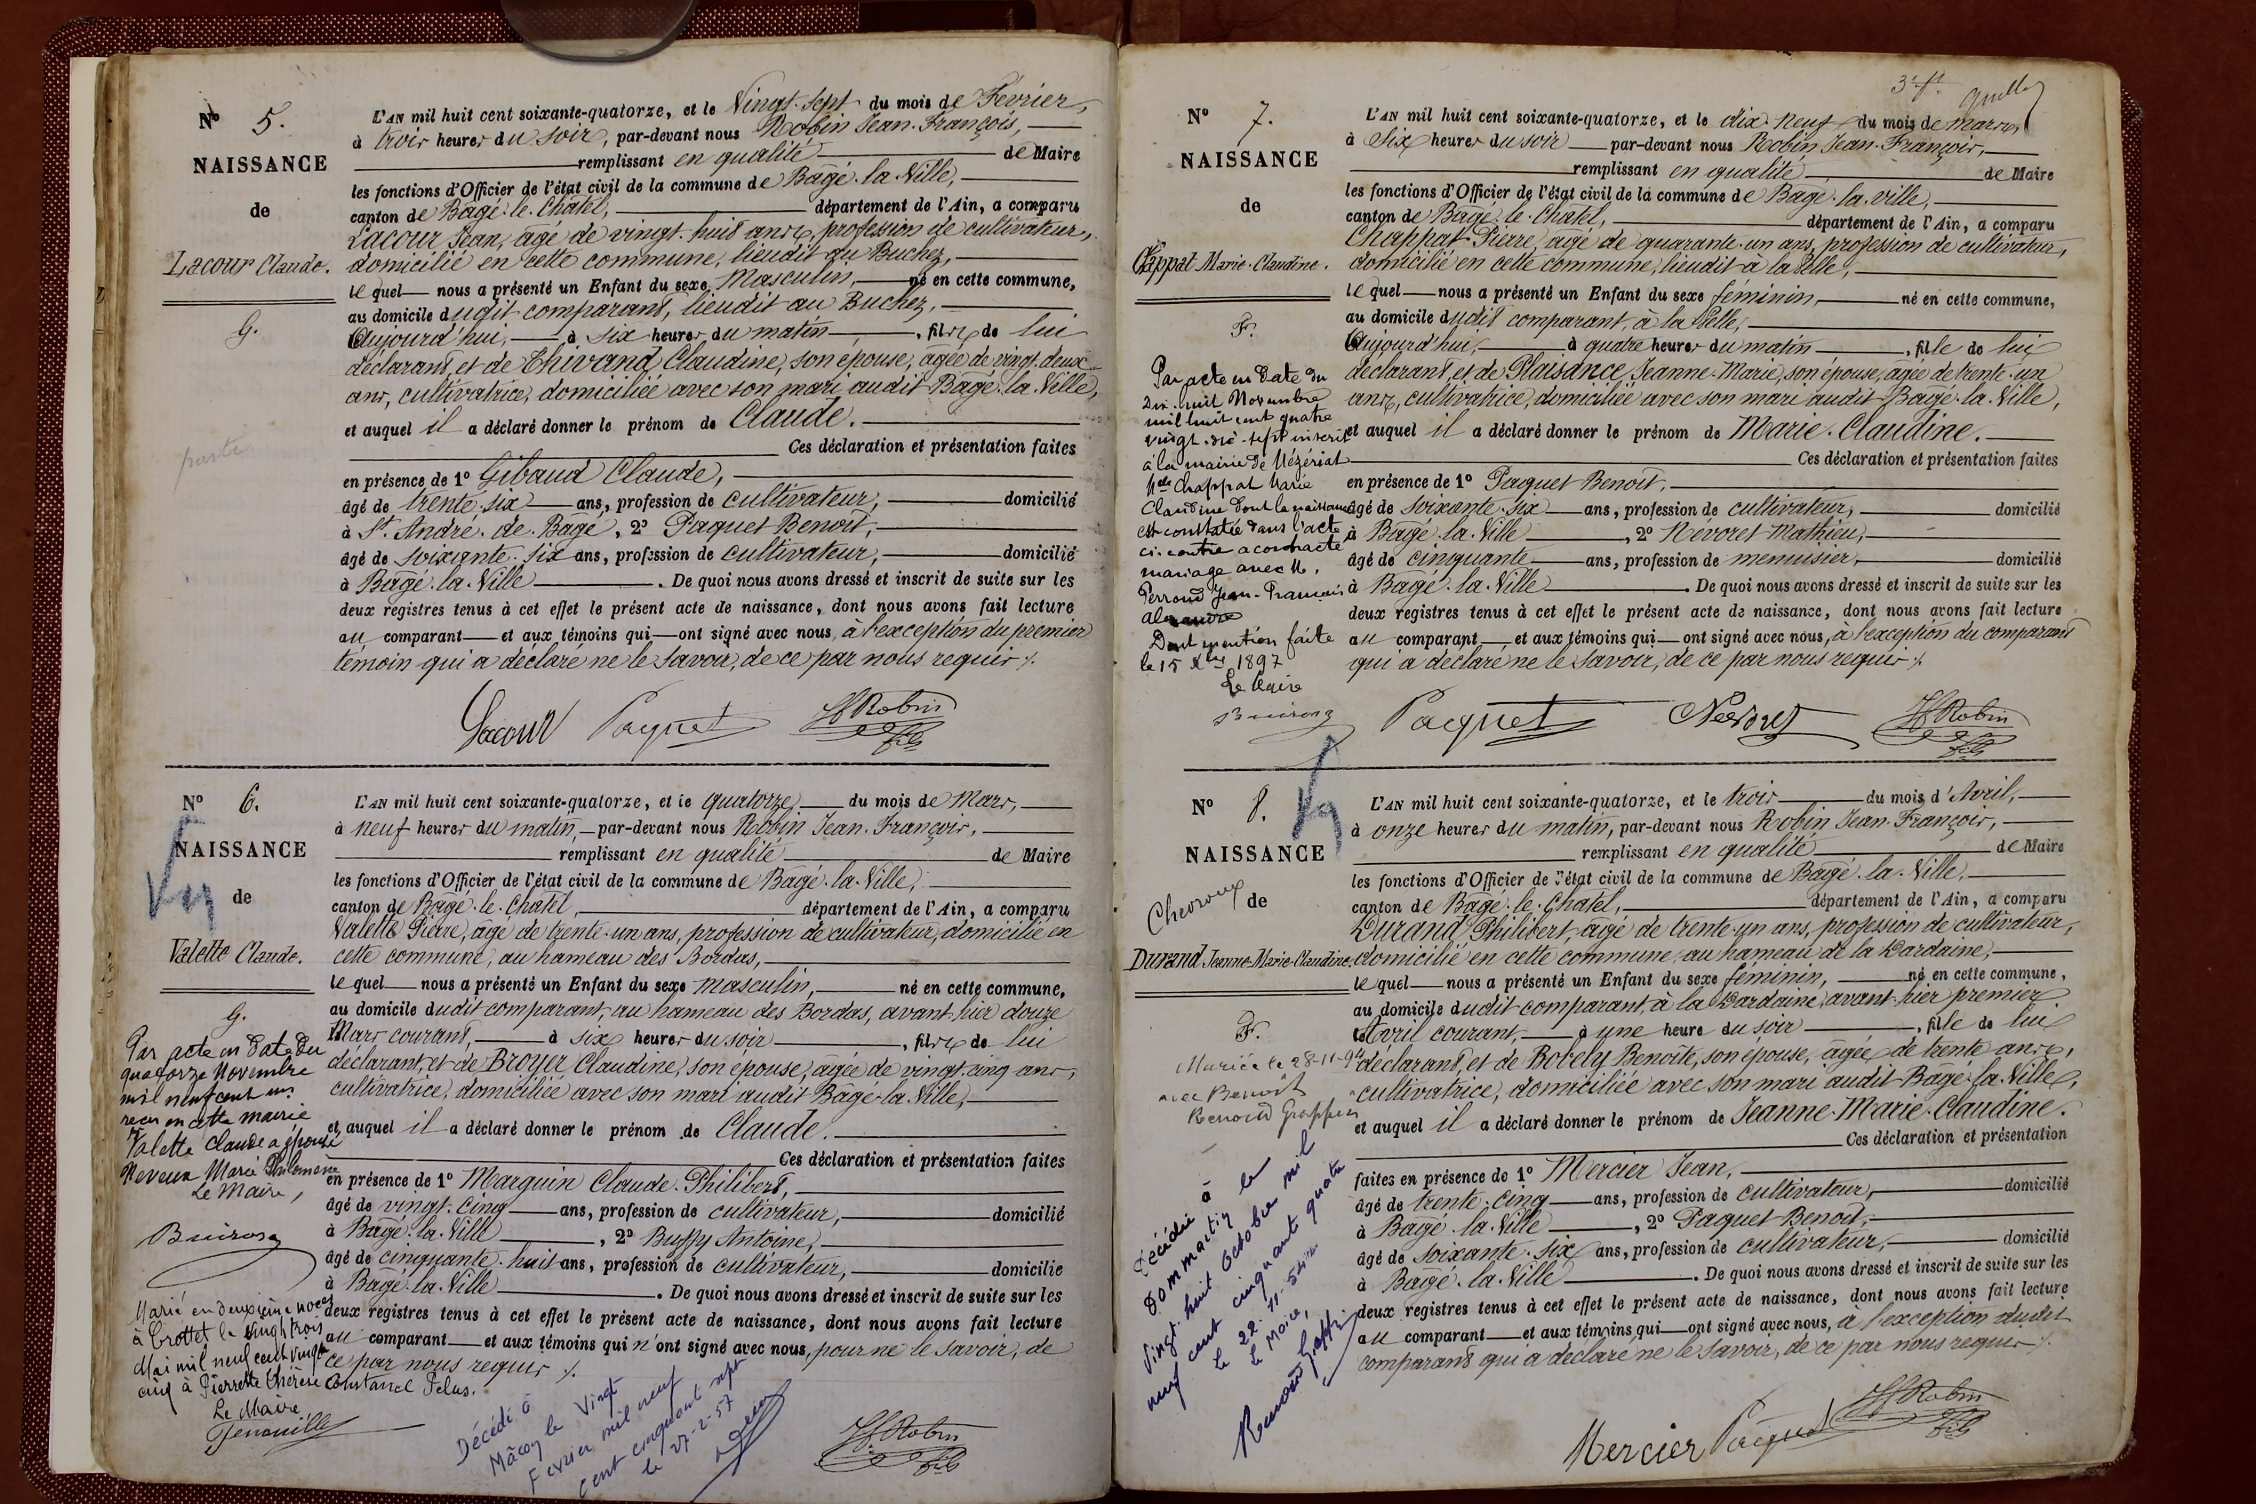 N° 5.
NAISSANCE
de
Lacour Claude.
G.
L'AN mil huit cent soixante-quatorze, et le Vingt-Sept du mois de Février,
à trois heures du soir, par-devant nous Robin Jean-François,
remplissant en qualité de Maire
les fonctions d'Officier de l'état civil de la commune de Bâgé-la-Ville,
canton de Bâgé-le-Châtel, département de l'Ain, a comparu
Lacour Jean, âgé de vingt-huit ans, profession de cultivateur,
domicilié en cette commune, lieudit au Buchez,
le quel nous a présenté un Enfant du sexe Masculin, né en cette commune,
au domicile dudit comparant, lieudit au Buchez,
Aujourd'hui, à six heures du matin, fils de lui
déclarant, et de Chivand Claudine, son épouse, âgée de vingt-deux
ans, cultivatrice, domiciliée avec son mari audit Bâgé-la-Ville,
et auquel il a déclaré donner le prénom de Claude.
Ces déclaration et présentation faites
en présence de 1° Gibaud Claude,
âgé de trente-six ans, profession de cultivateur, domicilié
à St. André-de-Bâgé, 2° Paquet Benoît,
âgé de soixante-six ans, profession de cultivateur, domicilié
à Bâgé-la-Ville. De quoi nous avons dressé et inscrit de suite sur les
deux registres tenus à cet effet le présent acte de naissance, dont nous avons fait lecture
au comparant et aux témoins qui ont signé avec nous, à l'exception du premier
témoin qui a déclaré ne le savoir, de ce par nous requis ./.
Lacour Paquet Robin fils
N° 6.
NAISSANCE
de
Valette Claude.
G.
Par acte en date du
quatorze Novembre
mil neuf cent un
reçu en cette mairie
Valette Claude a épousé
Neveux Marie Philomène
Le Maire,
Marié en deuxième noces
à Crottet le vingt trois
Mai mil neuf cent vingt
cinq à Pierrette Thérèse Constance Felus.
Le Maire
L'AN mil huit cent soixante-quatorze, et le quatorze du mois de Mars,
à neuf heures du matin, par-devant nous Robin Jean-François,
remplissant en qualité de Maire
les fonctions d'Officier de l'état civil de la commune de Bâgé-la-Ville,
canton de Bâgé-le-Châtel, département de l'Ain, a comparu
Valette Pierre, âgé de trente-un ans, profession de cultivateur, domicilié en
cette commune, au hameau des Bordas,
le quel nous a présenté un Enfant du sexe masculin, né en cette commune,
au domicile dudit comparant, au hameau des Bordas, avant-hier douze
Mars courant, à six heures du soir, fils de lui
déclarant, et de Broyer Claudine, son épouse, âgée de vingt-cinq ans,
cultivatrice, domiciliée avec son mari audit Bâgé-la-Ville,
et auquel il a déclaré donner le prénom de Claude.
Ces déclaration et présentation faites
en présence de 1° Marguin Claude-Philibert,
âgé de vingt-cinq ans, profession de cultivateur, domicilié
à Bâgé-la-Ville, 2° Buffy Antoine,
âgé de cinquante-huit ans, profession de cultivateur, domicilié
à Bâgé-la-Ville. De quoi nous avons dressé et inscrit de suite sur les
deux registres tenus à cet effet le présent acte de naissance, dont nous avons fait lecture
au comparant et aux témoins qui n'ont signé avec nous, pour ne le savoir, de
ce par nous requis ./.
Décédé à
Mâcon le Vingt
Fevrier mil neuf
cent cinquante sept
le 27-2-57
Robin fils
N° 7.
NAISSANCE
de
Chappat Marie-Claudine.
F.
Par acte en date du
Dix-huit Novembre
mil huit cent quatre
vingt-dix-sept inscrit
à la mairie de Mézériat
Melle Chappat Marie
Claudine dont la naissance
est constatée dans l'acte
ci-contre a contracté
mariage avec M.
Perroud Jean-François
Alexandre
Dont mention faite
le 15 Xbre 1897
Le Maire
L'AN mil huit cent soixante-quatorze, et le dix-neuf du mois de mars,
à Six heures du soir par-devant nous Robin Jean-François,
remplissant en qualité de Maire
les fonctions d'Officier de l'état civil de la commune de Bâgé-la-ville,
canton de Bâgé-le-Châtel, département de l'Ain, a comparu
Chappat Pierre, âgé de quarante-un ans, profession de cultivateur,
domicilié en cette commune, lieudit à la Pelle,
le quel nous a présenté un Enfant du sexe féminin, né en cette commune,
au domicile dudit comparant, à la Pelle,
Aujourd'hui, à quatre heures du matin, fille de lui
déclarant, et de Plaisance Jeanne-Marie, son épouse, âgée de trente-un
ans, cultivatrice, domiciliée avec son mari audit Bâgé-la-Ville,
et auquel il a déclaré donner le prénom de Marie-Claudine.
Ces déclaration et présentation faites
en présence de 1° Paquet Benoît,
âgé de soixante-six ans, profession de cultivateur, domicilié
à Bâgé-la-Ville, 2° Névoret Mathieu,
âgé de cinquante ans, profession de menuisier, domicilié
à Bâgé-la-Ville. De quoi nous avons dressé et inscrit de suite sur les
deux registres tenus à cet effet le présent acte de naissance, dont nous avons fait lecture
au comparant et aux témoins qui ont signé avec nous, à l'exception du comparant
qui a déclaré ne le savoir, de ce par nous requis ./.
Paquet Névoret Robin fils
N° 8.
NAISSANCE
de
Chevroux
Durand Jeanne-Marie-Claudine.
F.
Mariée le 28-11-94
avec Benoît
Décédée à
Dommartin le
Vingt-huit Octobre mil
neuf cent cinquante quatre
le 22-11-54
le Maire,
L'AN mil huit cent soixante-quatorze, et le trois du mois d'Avril,
à onze heures du matin, par-devant nous Robin Jean-François,
remplissant en qualité de Maire
les fonctions d'Officier de l'état civil de la commune de Bâgé-la-Ville,
canton de Bâgé-le-Châtel, département de l'Ain, a comparu
Durand Philibert, âgé de trente-un ans, profession de cultivateur,
domicilié en cette commune, au hameau de la Dardaine,
le quel nous a présenté un Enfant du sexe féminin, né en cette commune,
au domicile dudit comparant, à la Dardaine, avant-hier premier
Avril courant, à une heure du soir, fille de lui
déclarant, et de Benoîte, son épouse, âgée de trente ans,
cultivatrice, domiciliée avec son mari audit Bâgé-la-Ville,
et auquel il a déclaré donner le prénom de Jeanne-Marie-Claudine.
Ces déclaration et présentation
faites en présence de 1° Mercier Jean,
âgé de trente-cinq ans, profession de cultivateur, domicilié
à Bâgé-la-Ville, 2° Paquet Benoît,
âgé de soixante-six ans, profession de cultivateur, domicilié
à Bâgé-la-Ville. De quoi nous avons dressé et inscrit de suite sur les
deux registres tenus à cet effet le présent acte de naissance, dont nous avons fait lecture
au comparant et aux témoins qui ont signé avec nous, à l'exception dudit
comparant qui a déclaré ne le savoir, de ce par nous requis ./.
Mercier Paquet Robin fils